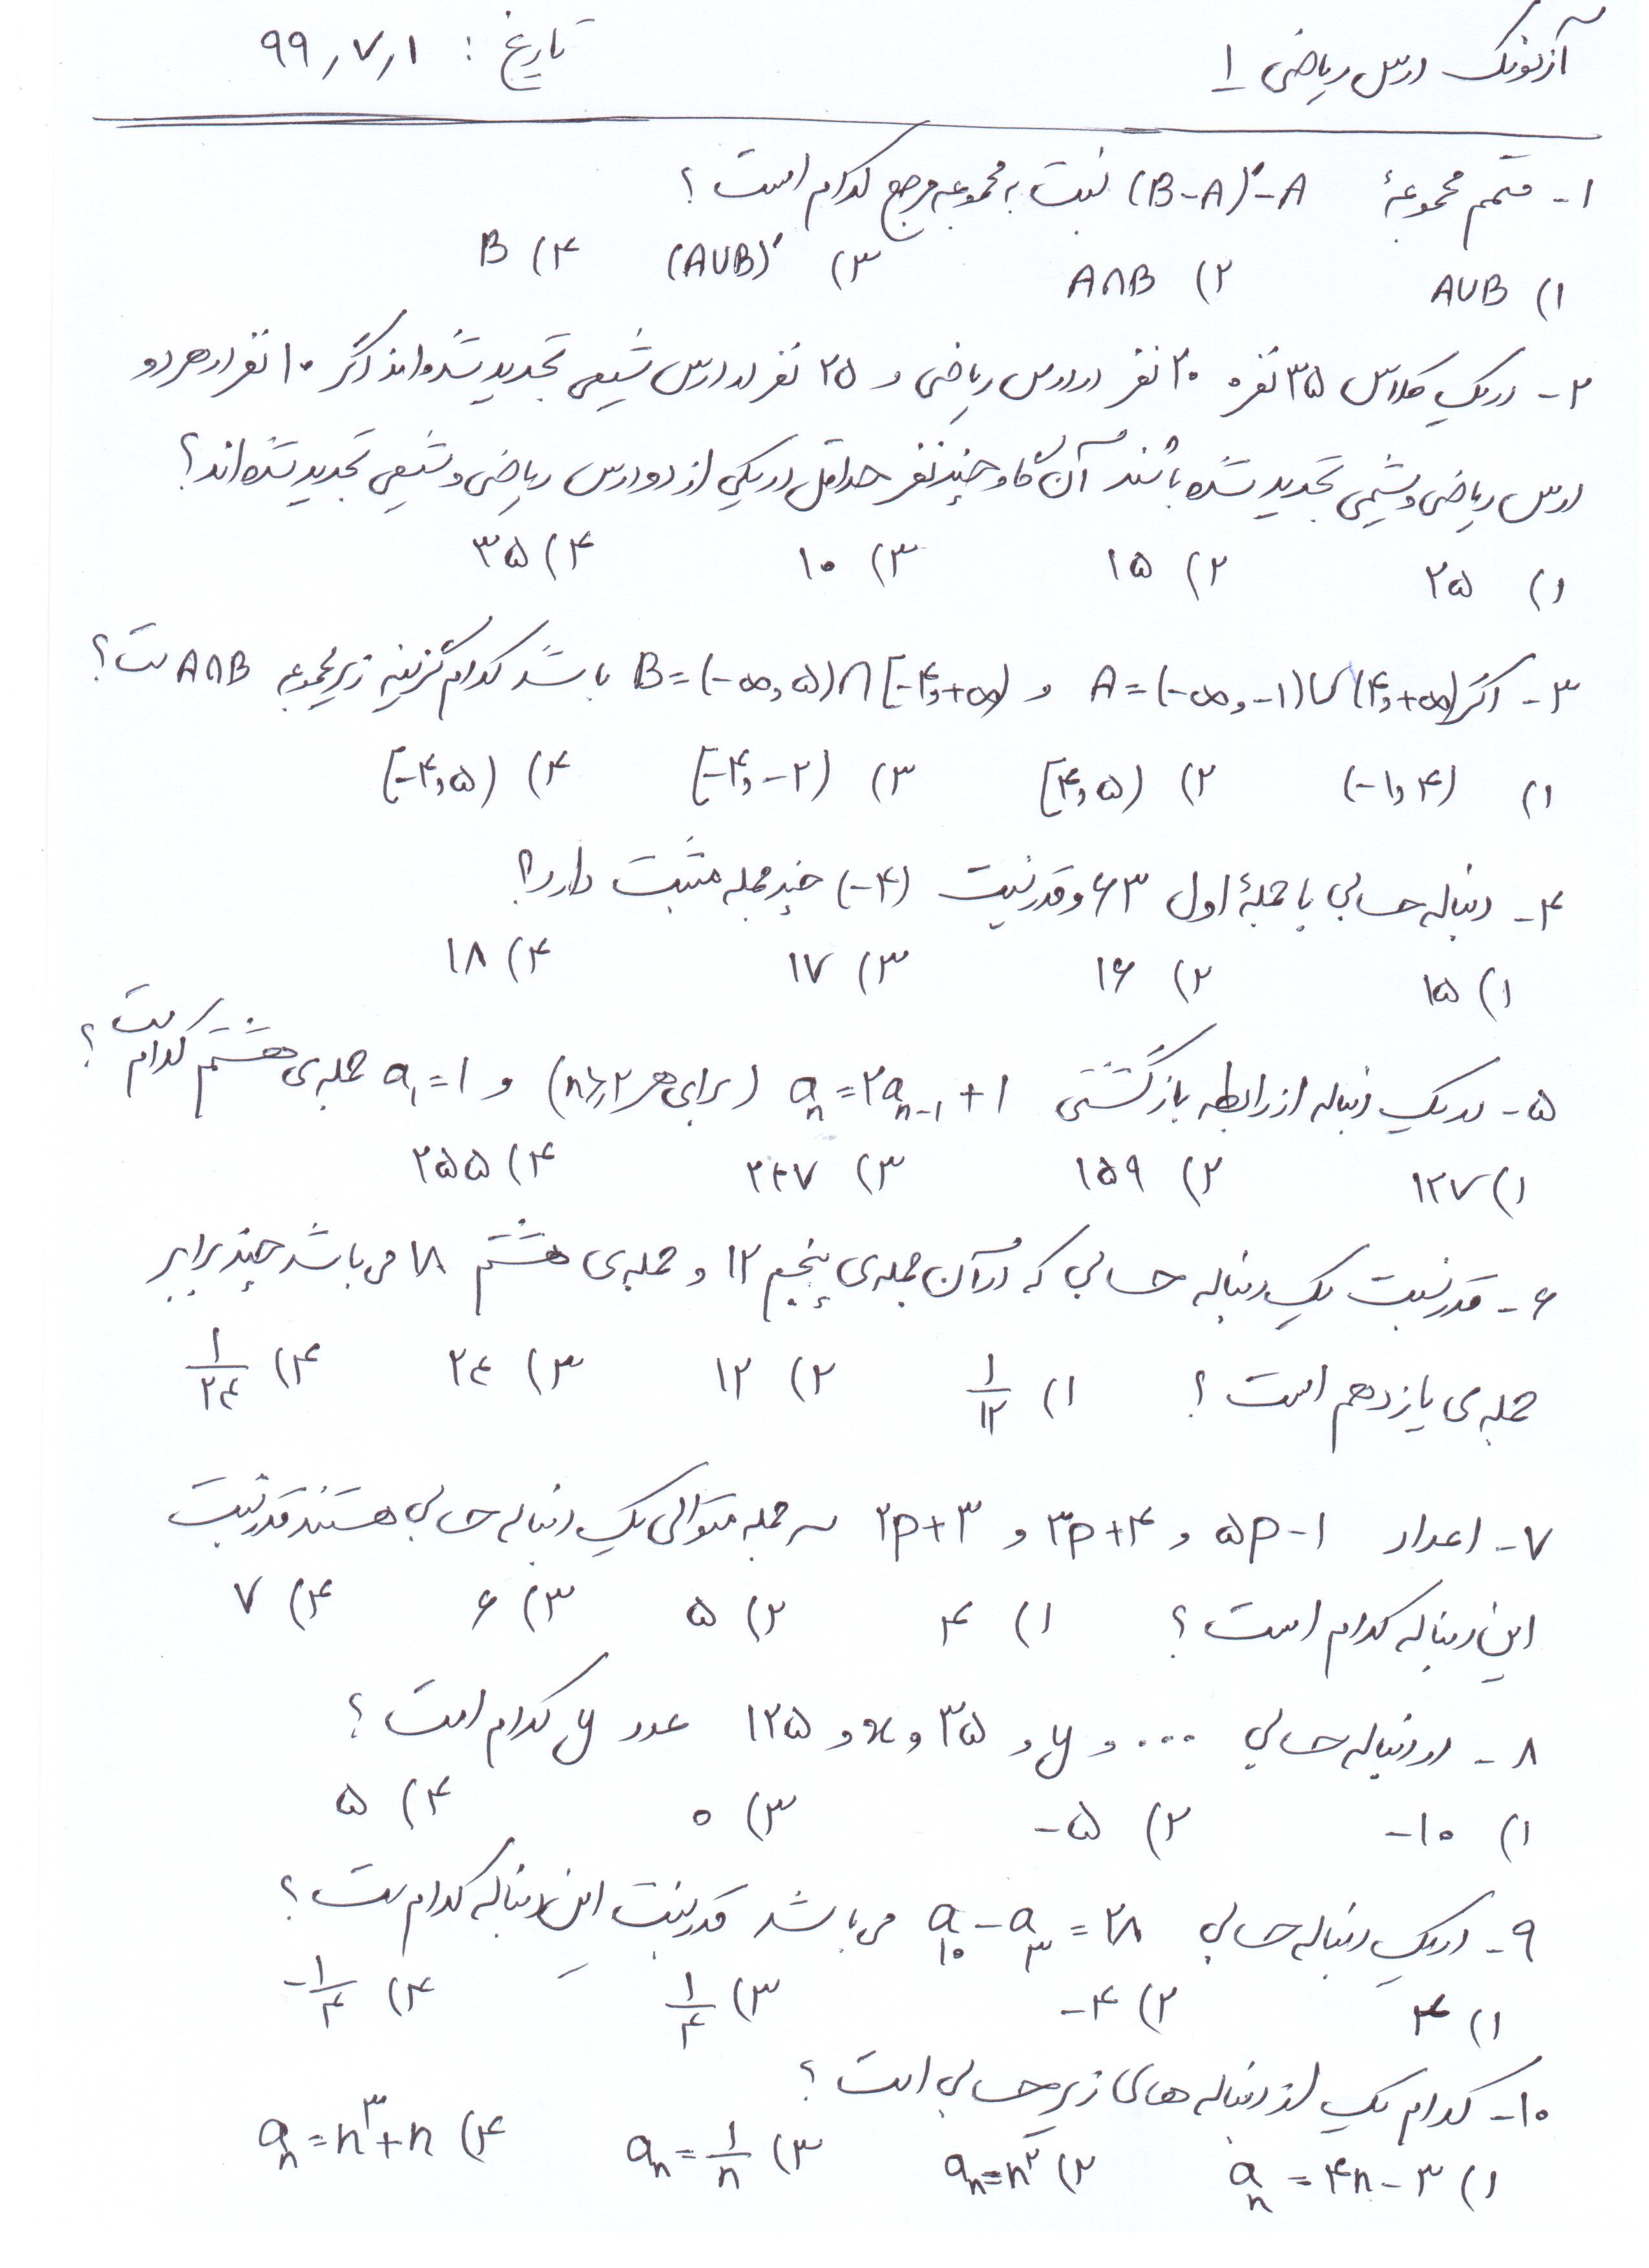 آزمونک درس ریاضی ۱
تاریخ : ۹۹٫۷٫۱
۱- متمم مجموعهٔ (B-A)′-A نسبت به مجموعه مرجع کدام است ؟
۱) A∪B ۲) A∩B ۳) (A∪B)′ ۴) B
۲- در یک کلاس ۳۵ نفره ۲۰ نفر در درس ریاضی و ۲۵ نفر در درس شیمی تجدید شده‌اند اگر ۱۰ نفر در هر دو
درس ریاضی و شیمی تجدید شده باشند آن‌گاه چند نفر حداقل در یکی از دو درس ریاضی و شیمی تجدید شده‌اند ؟
۱) ۲۵ ۲) ۱۵ ۳) ۱۰ ۴) ۳۵
۳- اگر A=(-∞,-۱)∪(۴,+∞) و B=(-∞,۵)∩[-۴,+∞) باشد کدام گزینه زیرمجموعه A∩B است ؟
۱) (-۱,۴) ۲) [۴,۵) ۳) [-۴,-۲) ۴) [-۴,۵)
۴- دنباله حسابی با جملهٔ اول ۶۳ و قدر نسبت (-۴) چند جمله مثبت دارد ؟
۱) ۱۵ ۲) ۱۶ ۳) ۱۷ ۴) ۱۸
۵- در یک دنباله از رابطه بازگشتی aₙ=۲aₙ₋₁+۱ (برای هر n≥۲) و a₁=۱ جمله‌ی هشتم کدام است ؟
۱) ۱۲۷ ۲) ۱۵۹ ۳) ۲۴۷ ۴) ۲۵۵
۶- قدر نسبت یک دنباله حسابی که در آن جمله‌ی پنجم ۱۲ و جمله‌ی هشتم ۱۸ می باشد چند برابر
جمله‌ی یازدهم است ؟ ۱) ۱/۱۲ ۲) ۱۲ ۳) ۲۴ ۴) ۱/۲۴
۷- اعداد ۵p-۱ و ۳p+۴ و ۲p+۳ سه جمله متوالی یک دنباله حسابی هستند قدر نسبت
این دنباله کدام است ؟ ۱) ۴ ۲) ۵ ۳) ۶ ۴) ۷
۸- در دنباله حسابی ... و y و ۳۵ و x و ۱۲۵ عدد y کدام است ؟
۱) -۱۰ ۲) -۵ ۳) ۰ ۴) ۵
۹- در یک دنباله حسابی a₁₀-a₃=۲۸ می باشد قدر نسبت این دنباله کدام است ؟
۱) ۴ ۲) -۴ ۳) ۱/۴ ۴) -۱/۴
۱۰- کدام یک از دنباله های زیر حسابی است ؟
۱) aₙ=۴n-۳ ۲) aₙ=n² ۳) aₙ=۱/n ۴) aₙ=n³+n